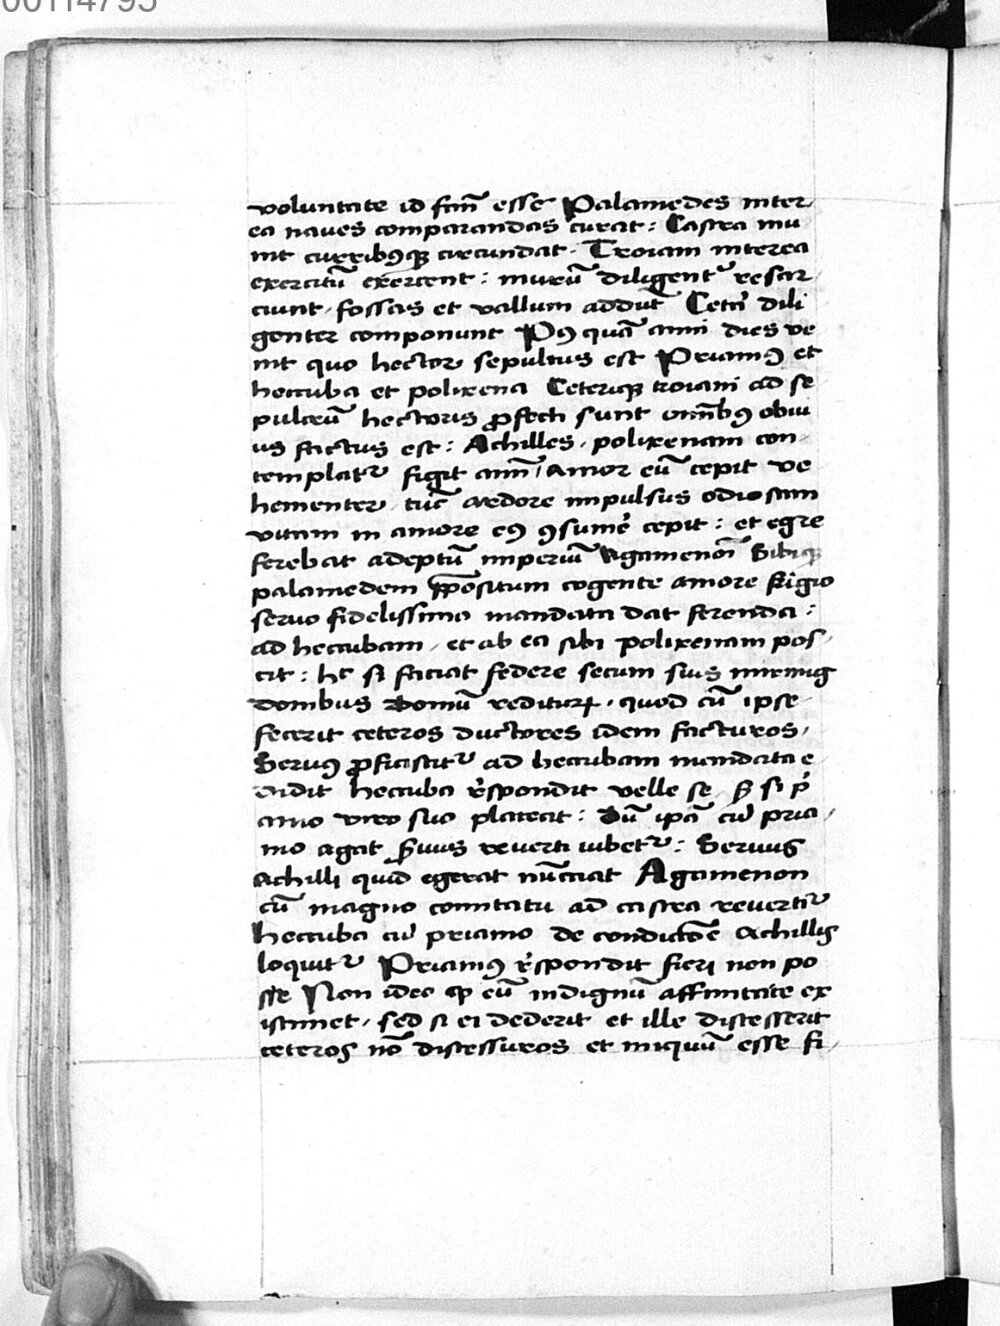 00114795
voluntate id fcm̄ esse Palamedes inter
ea naues comparandas curat: Castra mu
nit turribꝰqꝫ circundat. Troiani interea
exercitū exercent: murū diligent᷑ resar
ciunt. fossas et vallum addūt Cetā dili
genter componunt Pꝰ quā anni dies ve
nit quo hector sepultus est Priamꝰ et
hecuba et polixena Ceteriqꝫ troiani ad se
pulcrū hectoris ꝓfecti sunt om̄ibꝰ obui
us factus est: Achilles. polixenam con
templat᷑ figit aīm̄ amor eū cepit ve
hementer tūc ardore impulsus odiosam
vitam in amore eꝰ ꝯsume᷑ cepit: et egre
ferebat ademptū imperiū Agamenoī Sibiqꝫ
palamedem p̄positum cogente amore frigio
seruo fidelissimo mandata dat ferenda:
ad hecubam. et ab ea sibi polixenam pos
cit: hc si faciat sedere secum suis mirmig
donibus domū rediturꝝ. quod cū ipse
fecerit ceteros ductores idem facturos.
Seruꝰ ꝓficiscit᷑ ad hecubam mandata e
didit hecuba r̄spondit velle se si p
amo viro suo placeat: Dū ipā cū pria
mo agat s̄uus reuerti iubet᷑: Seruus
Achilli quid egerat nūciat Agamenon
cū magno comitatu ad castra reuertit᷑
hecuba cū priamo de condictōe Achillis
loquit᷑ Priamꝰ r̄spondit fieri non po
sse Non ideo ꝙ eū indignū affinitate ex
istimet. sed si ei dederit et ille discesserit
ceteros nō discessuros et iniquū esse fi